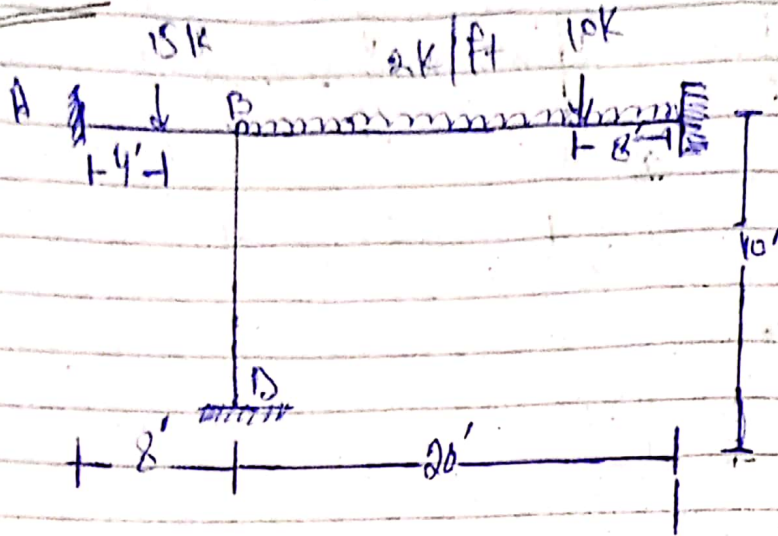 15 K 2K/ft 10K
A B
4' 8'
10'
D
8' 20'